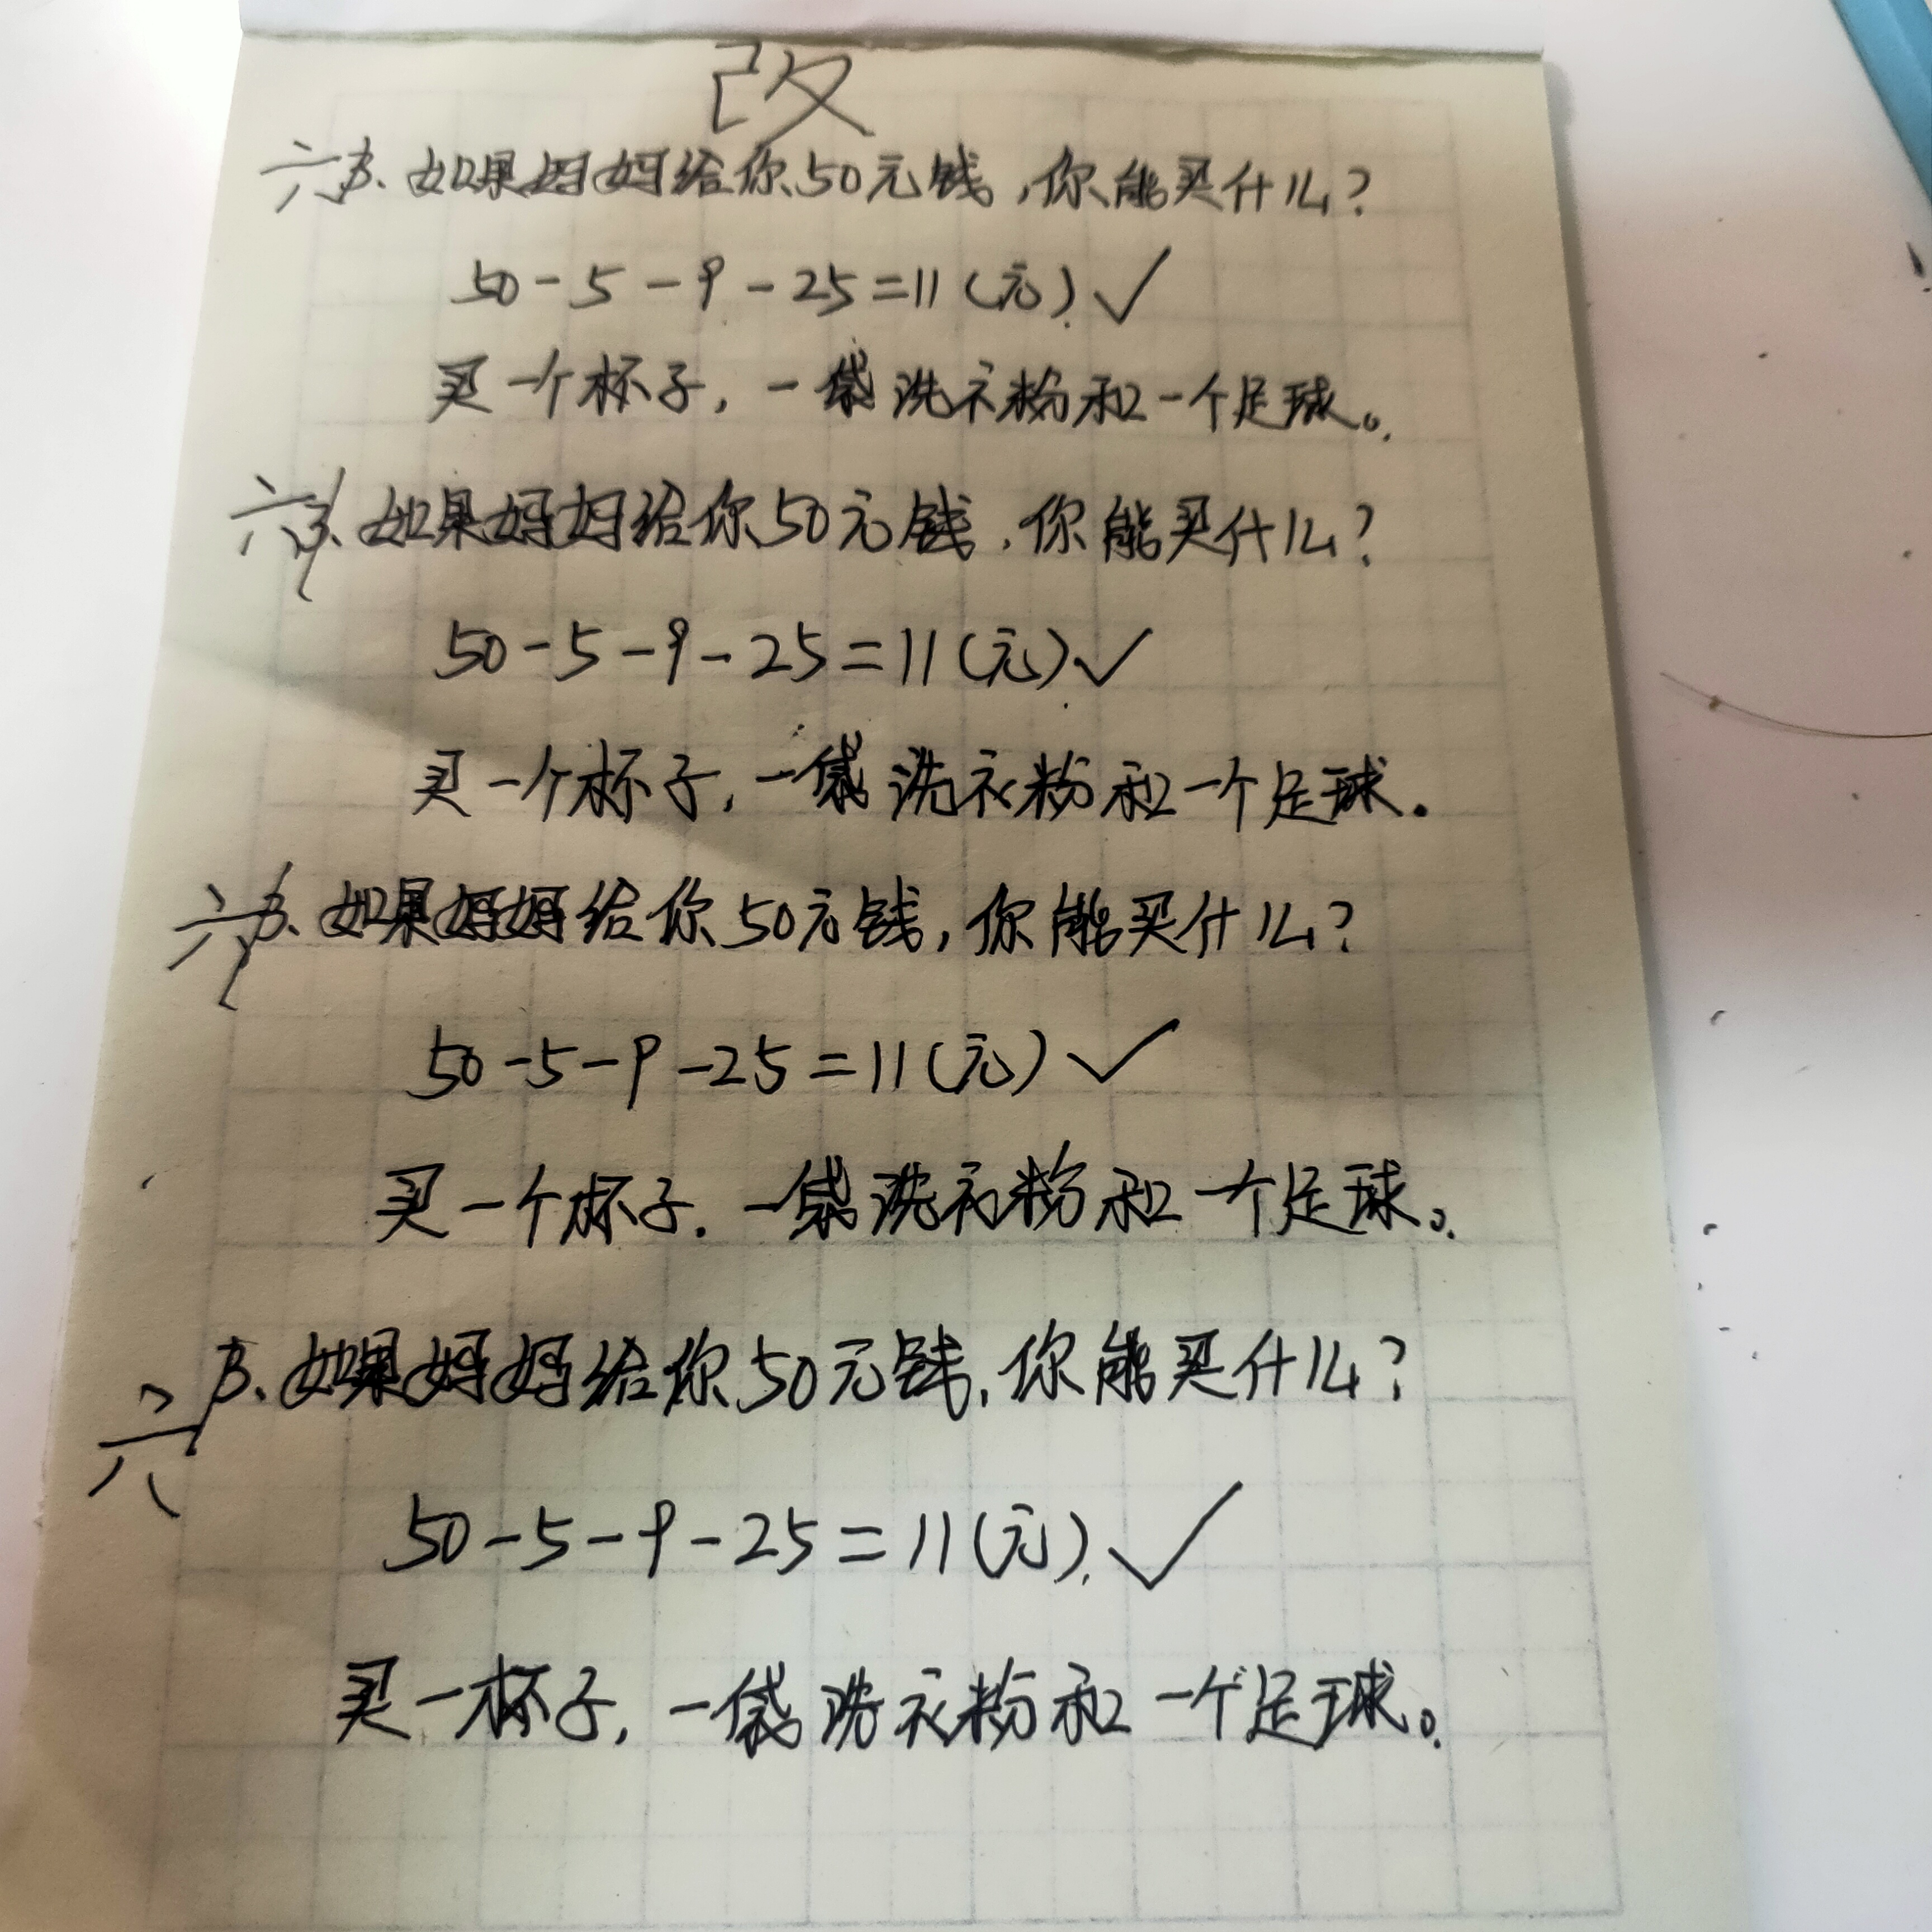 改
六3、如果妈妈给你50元钱,你能买什么?
50-5-9-25=11(元)✓
买一个杯子,一袋洗衣粉和一个足球。
六3、如果妈妈给你50元钱,你能买什么?
50-5-9-25=11(元)✓
买一个杯子,一袋洗衣粉和一个足球。
六3、如果妈妈给你50元钱,你能买什么?
50-5-9-25=11(元)✓
买一个杯子,一袋洗衣粉和一个足球。
六3、如果妈妈给你50元钱,你能买什么?
50-5-9-25=11(元)✓
买一杯子,一袋洗衣粉和一个足球。